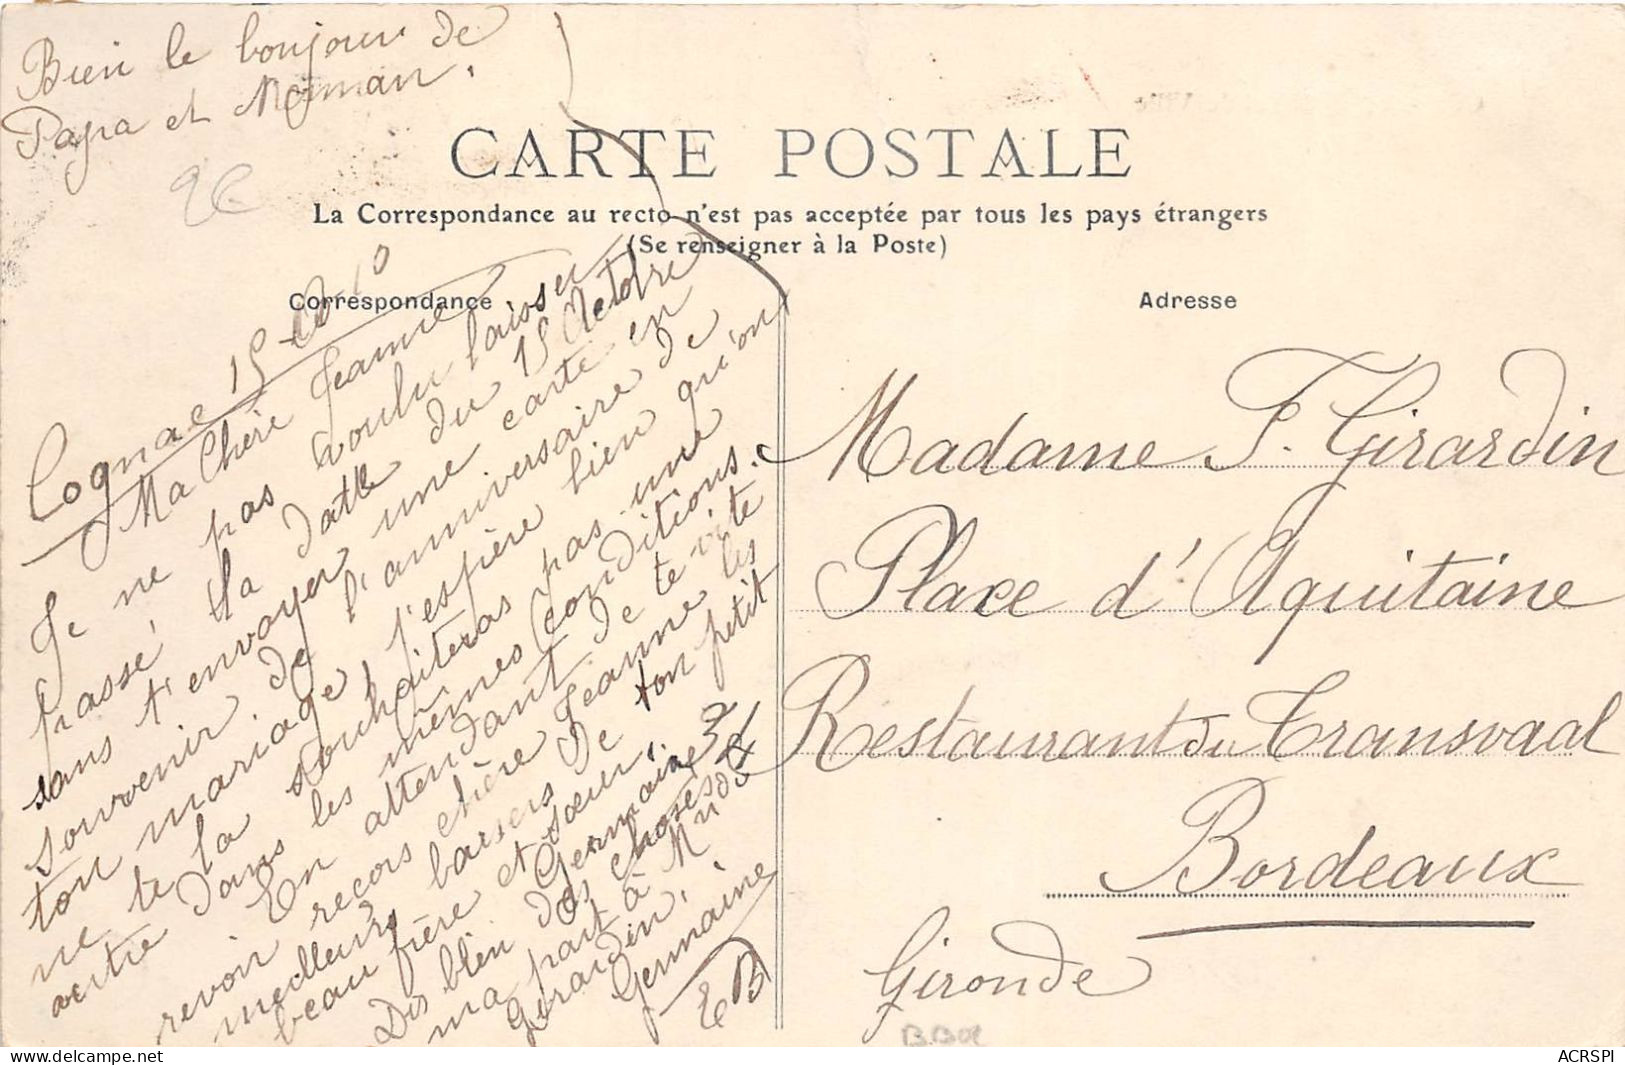 Bien le bonjour de
Papa et Maman.
CARTE POSTALE
La Correspondance au recto n'est pas acceptée par tous les pays étrangers
(Se renseigner à la Poste)
Correspondance
Adresse
Cognac 15
Ma Chère Jeanne
Je ne pas voulu laisser
passé la datte du 15 Octobre
sans t'envoyer une carte en
souvenir de l'anniversaire de
ton mariage j'espère bien qu'on
ne te la souhaiteras pas une
autre dans les mêmes conditions.
En attendant de te vite
revoir recois chère Jeanne les
meilleurs baisers de ton petit
beau frère et sœur Germaine
Dis bien des choses de
ma part à M
Girardin.
Germaine
EB
Madame F. Girardin
Place d'Aquitaine
Restaurant du Transvaal
Bordeaux
Gironde
ACRSPI